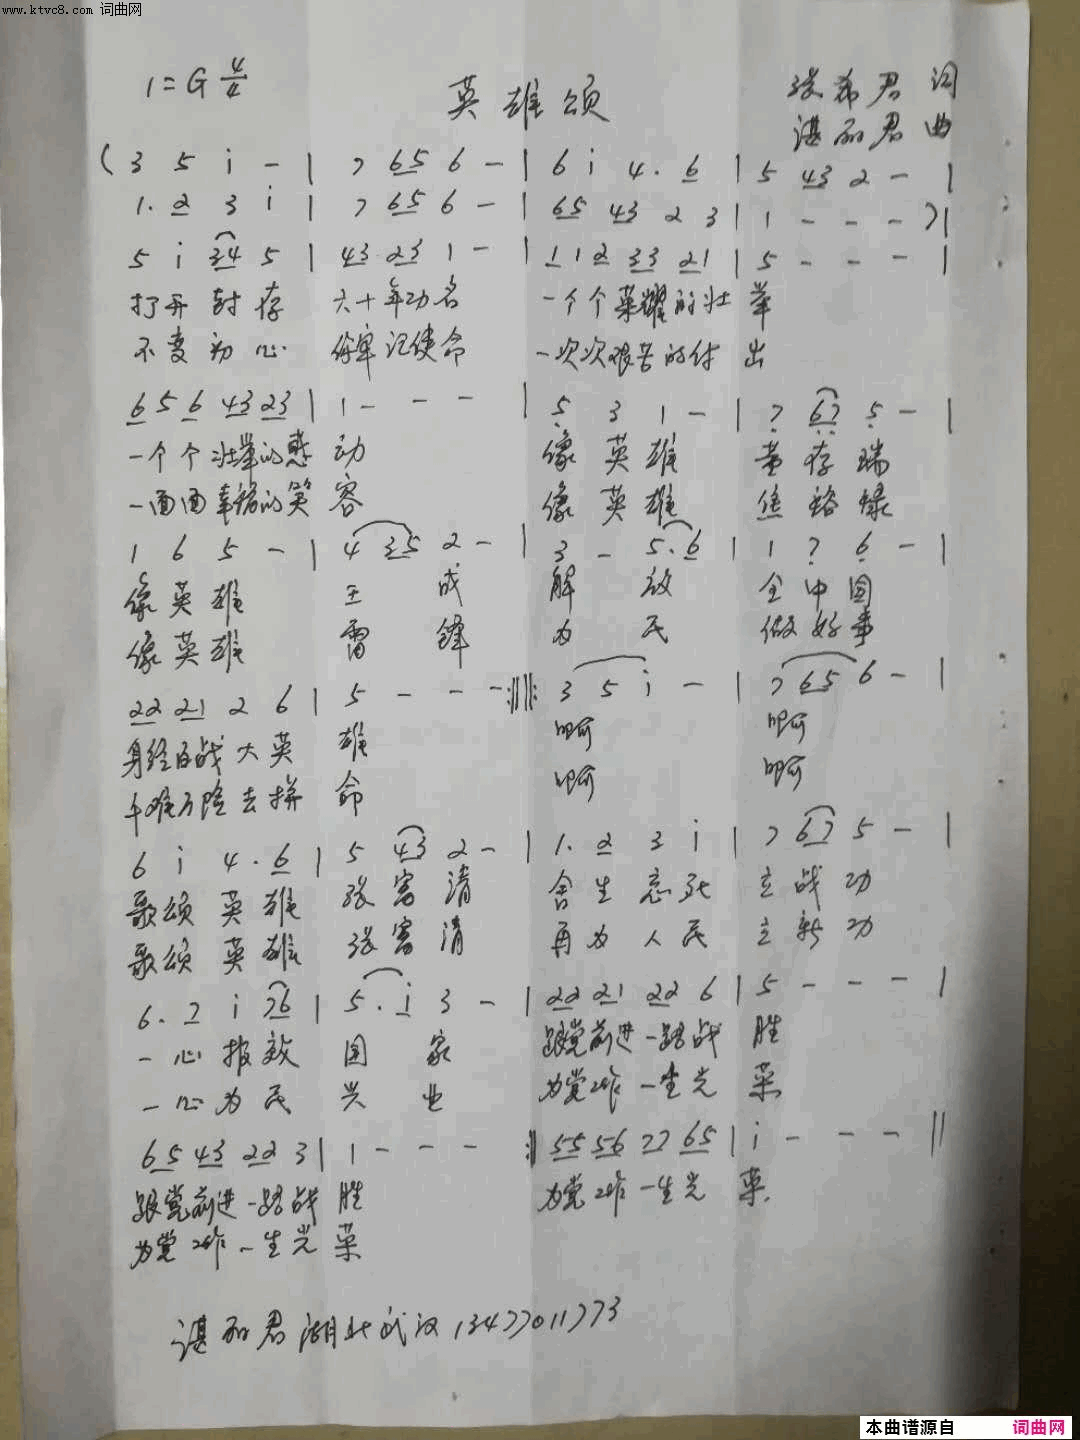 www.ktvc8.com 词曲网
1=G 4/4
英雄颂
张希君 词
谌丽君 曲
(3 5 i - | 7 65 6 - | 6 i 4. 6 | 5 43 2 - |
1. 2 3 i | 7 65 6 - | 65 43 2 3 | 1 - - - )|
5 i 34 5 | 43 23 1 - | 1 1 2 33 21 | 5 - - - |
打开封存 六十年功名 一个个荣耀的壮举
不变初心 牢记使命 一次次艰苦的付出
6 5 6 43 23 | 1 - - - | 5 3 1 - | 7 67 5 - |
一个个壮举的感动 像英雄 董存瑞
一面面幸福的笑容 像英雄 焦裕禄
1 6 5 - | 4 35 2 - | 3 - 5. 6 | 1 7 6 - |
像英雄 王成 解放 全中国
像英雄 雷锋 为民 做好事
22 21 2 6 | 5 - - - :||: 3 5 i - | 7 65 6 - |
身经百战大英雄 啊 啊
千难万险去拼命 啊 啊
6 i 4. 6 | 5 43 2 - | 1. 2 3 i | 7 67 5 - |
歌颂英雄 张富清 舍生忘死 立战功
歌颂英雄 张富清 再为人民 立新功
6. 7 i 76 | 5. i 3 - | 22 21 22 6 | 5 - - - |
一心报效国家 跟党前进一路战胜
一心为民兴业 为党工作一生光荣
65 43 22 3 | 1 - - - :| 55 56 77 65 | i - - - ||
跟党前进一路战胜 为党工作一生光荣
为党工作一生光荣
谌丽君 湖北武汉 13477011773
本曲谱源自 词曲网